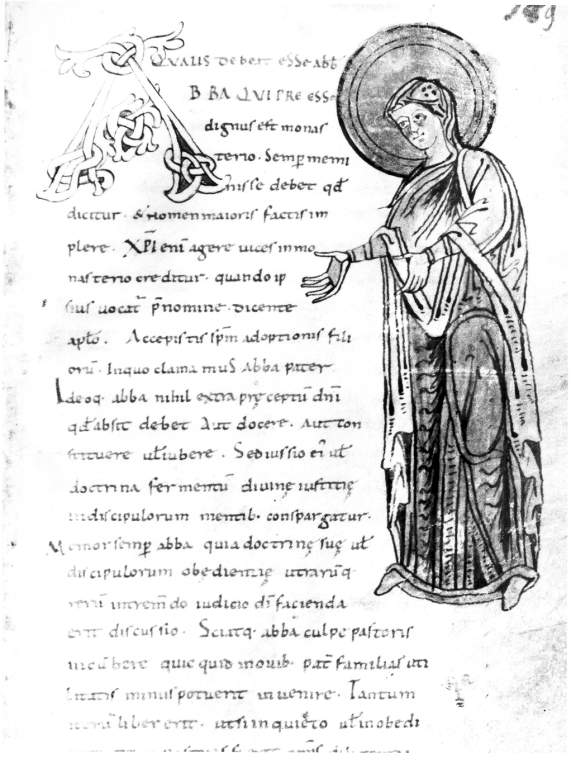 189
QUALIS DEbeat eSSe abƀ
ABBA QUI PRE eSSe
dignus est monas
terio. Semp̄ memi
nisse debet qđ
dicitur. & nomen maioris factis im
plere. XPI enī agere vices in mo
nasterio creditur. quando ip
sius vocat̄ p̄nomine. dicente
aplo. Accepistis sp̄m adoptionis fili
orū. In quo clamamus abba pater
Ideoq. abba nihil extra pręceptū dn̄i
qđ absit debet Aut docere. Aut con
stituere uł iubere. Sed iussio ei uł
doctrina fermentū divinę iustitię
in discipulorum mentib. conspargatur.
Memor semp̄ abba quia doctrinę suę uł
discipulorum obędientię utrarūq
rerū in trem̄do iudicio dī facienda
erit discussio. Sciatq. abba culpe pastoris
incūbere quicquid in ovib. pat̄ familias uti
litatis minus potuerit invenire. Tantum
iterū liber erit. ut si inquieto uł inobedi